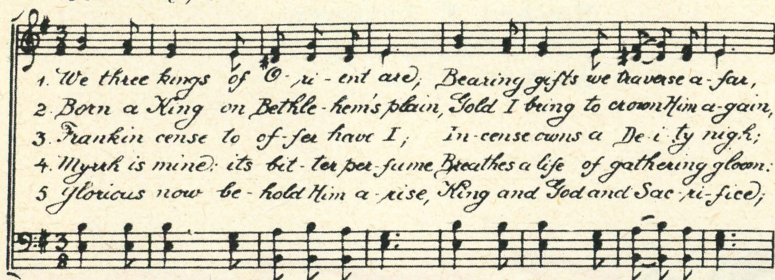 1. We three kings of O-ri-ent are; Bearing gifts we traverse a-far,
2. Born a King on Bethle-hem's plain, Gold I bring to crown Him a-gain,
3. Frankin cense to of-fer have I; In-cense owns a De-i-ty nigh;
4. Myrrh is mine: its bit-ter per-fume Breathes a life of gathering gloom:
5 Glorious now be-hold Him a-rise, King and God and Sac-ri-fice;